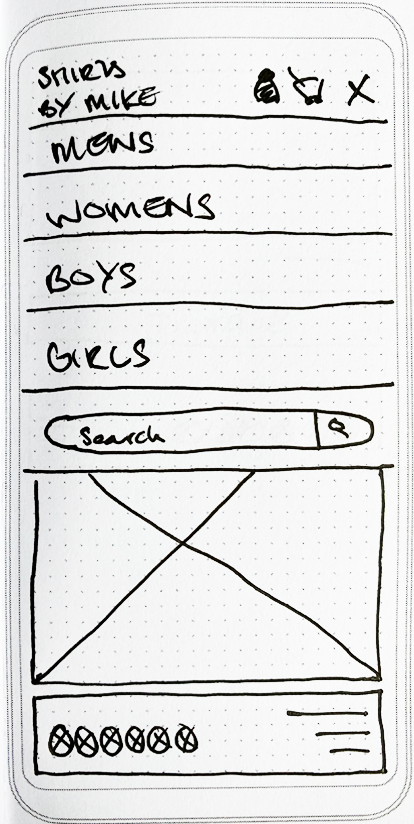 SHIRTS
BY MIKE
X
MENS
WOMENS
BOYS
GIRLS
Search